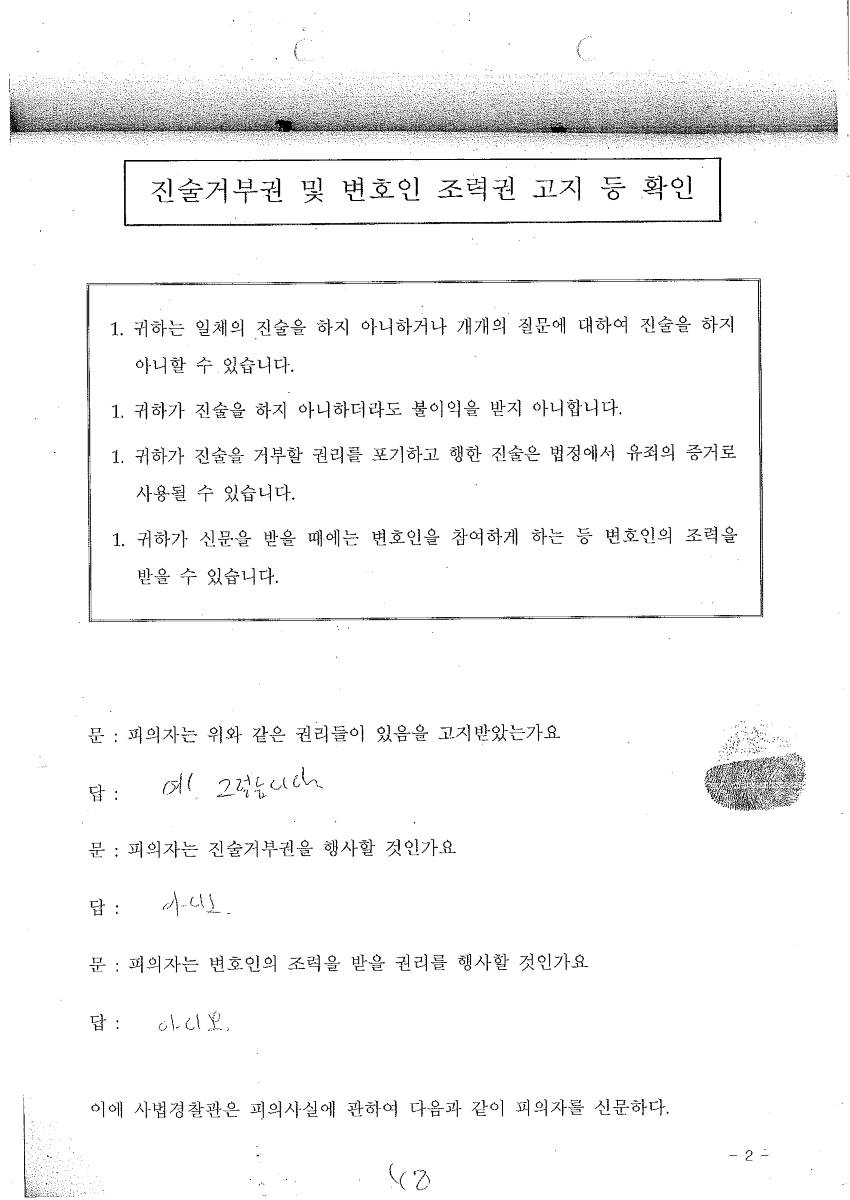 진술거부권 및 변호인 조력권 고지 등 확인
1. 귀하는 일체의 진술을 하지 아니하거나 개개의 질문에 대하여 진술을 하지
아니할 수 있습니다.
1. 귀하가 진술을 하지 아니하더라도 불이익을 받지 아니합니다.
1. 귀하가 진술을 거부할 권리를 포기하고 행한 진술은 법정에서 유죄의 증거로
사용될 수 있습니다.
1. 귀하가 신문을 받을 때에는 변호인을 참여하게 하는 등 변호인의 조력을
받을 수 있습니다.
문 : 피의자는 위와 같은 권리들이 있음을 고지받았는가요
답 : 예. 그렇습니다
문 : 피의자는 진술거부권을 행사할 것인가요
답 : 아니오.
문 : 피의자는 변호인의 조력을 받을 권리를 행사할 것인가요
답 : 아니오.
이에 사법경찰관은 피의사실에 관하여 다음과 같이 피의자를 신문하다.
- 2 -